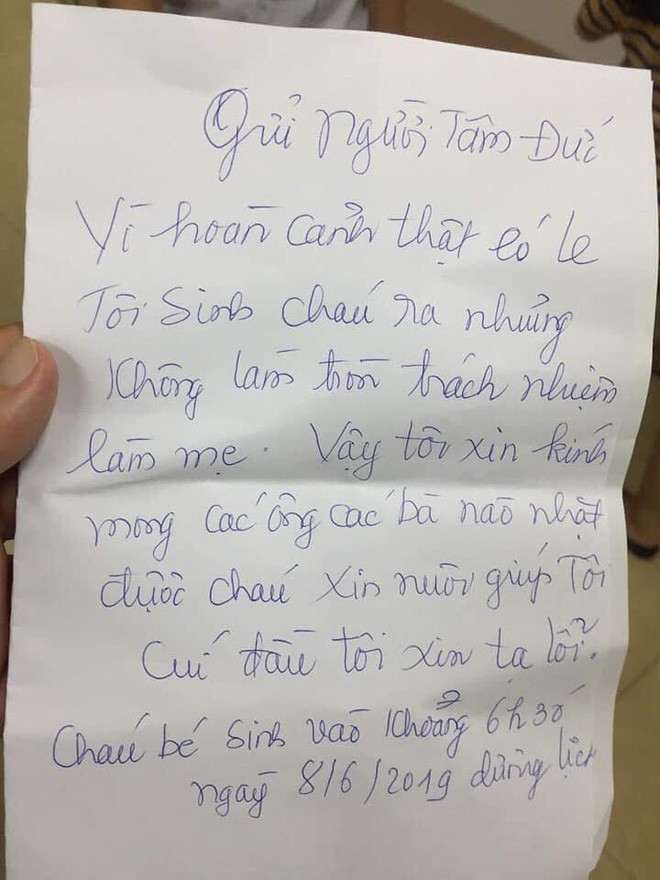 Gửi người Tâm Đức
Vì hoàn cảnh thật éo le
Tôi sinh cháu ra nhưng
không làm tròn trách nhiệm
làm mẹ. Vậy tôi xin kính
mong các ông các bà nào nhặt
được cháu xin nuôi giúp Tôi
Cúi đầu tôi xin tạ lỗi.
Cháu bé sinh vào khoảng 6h30
ngày 8/6/2019 dương lịch